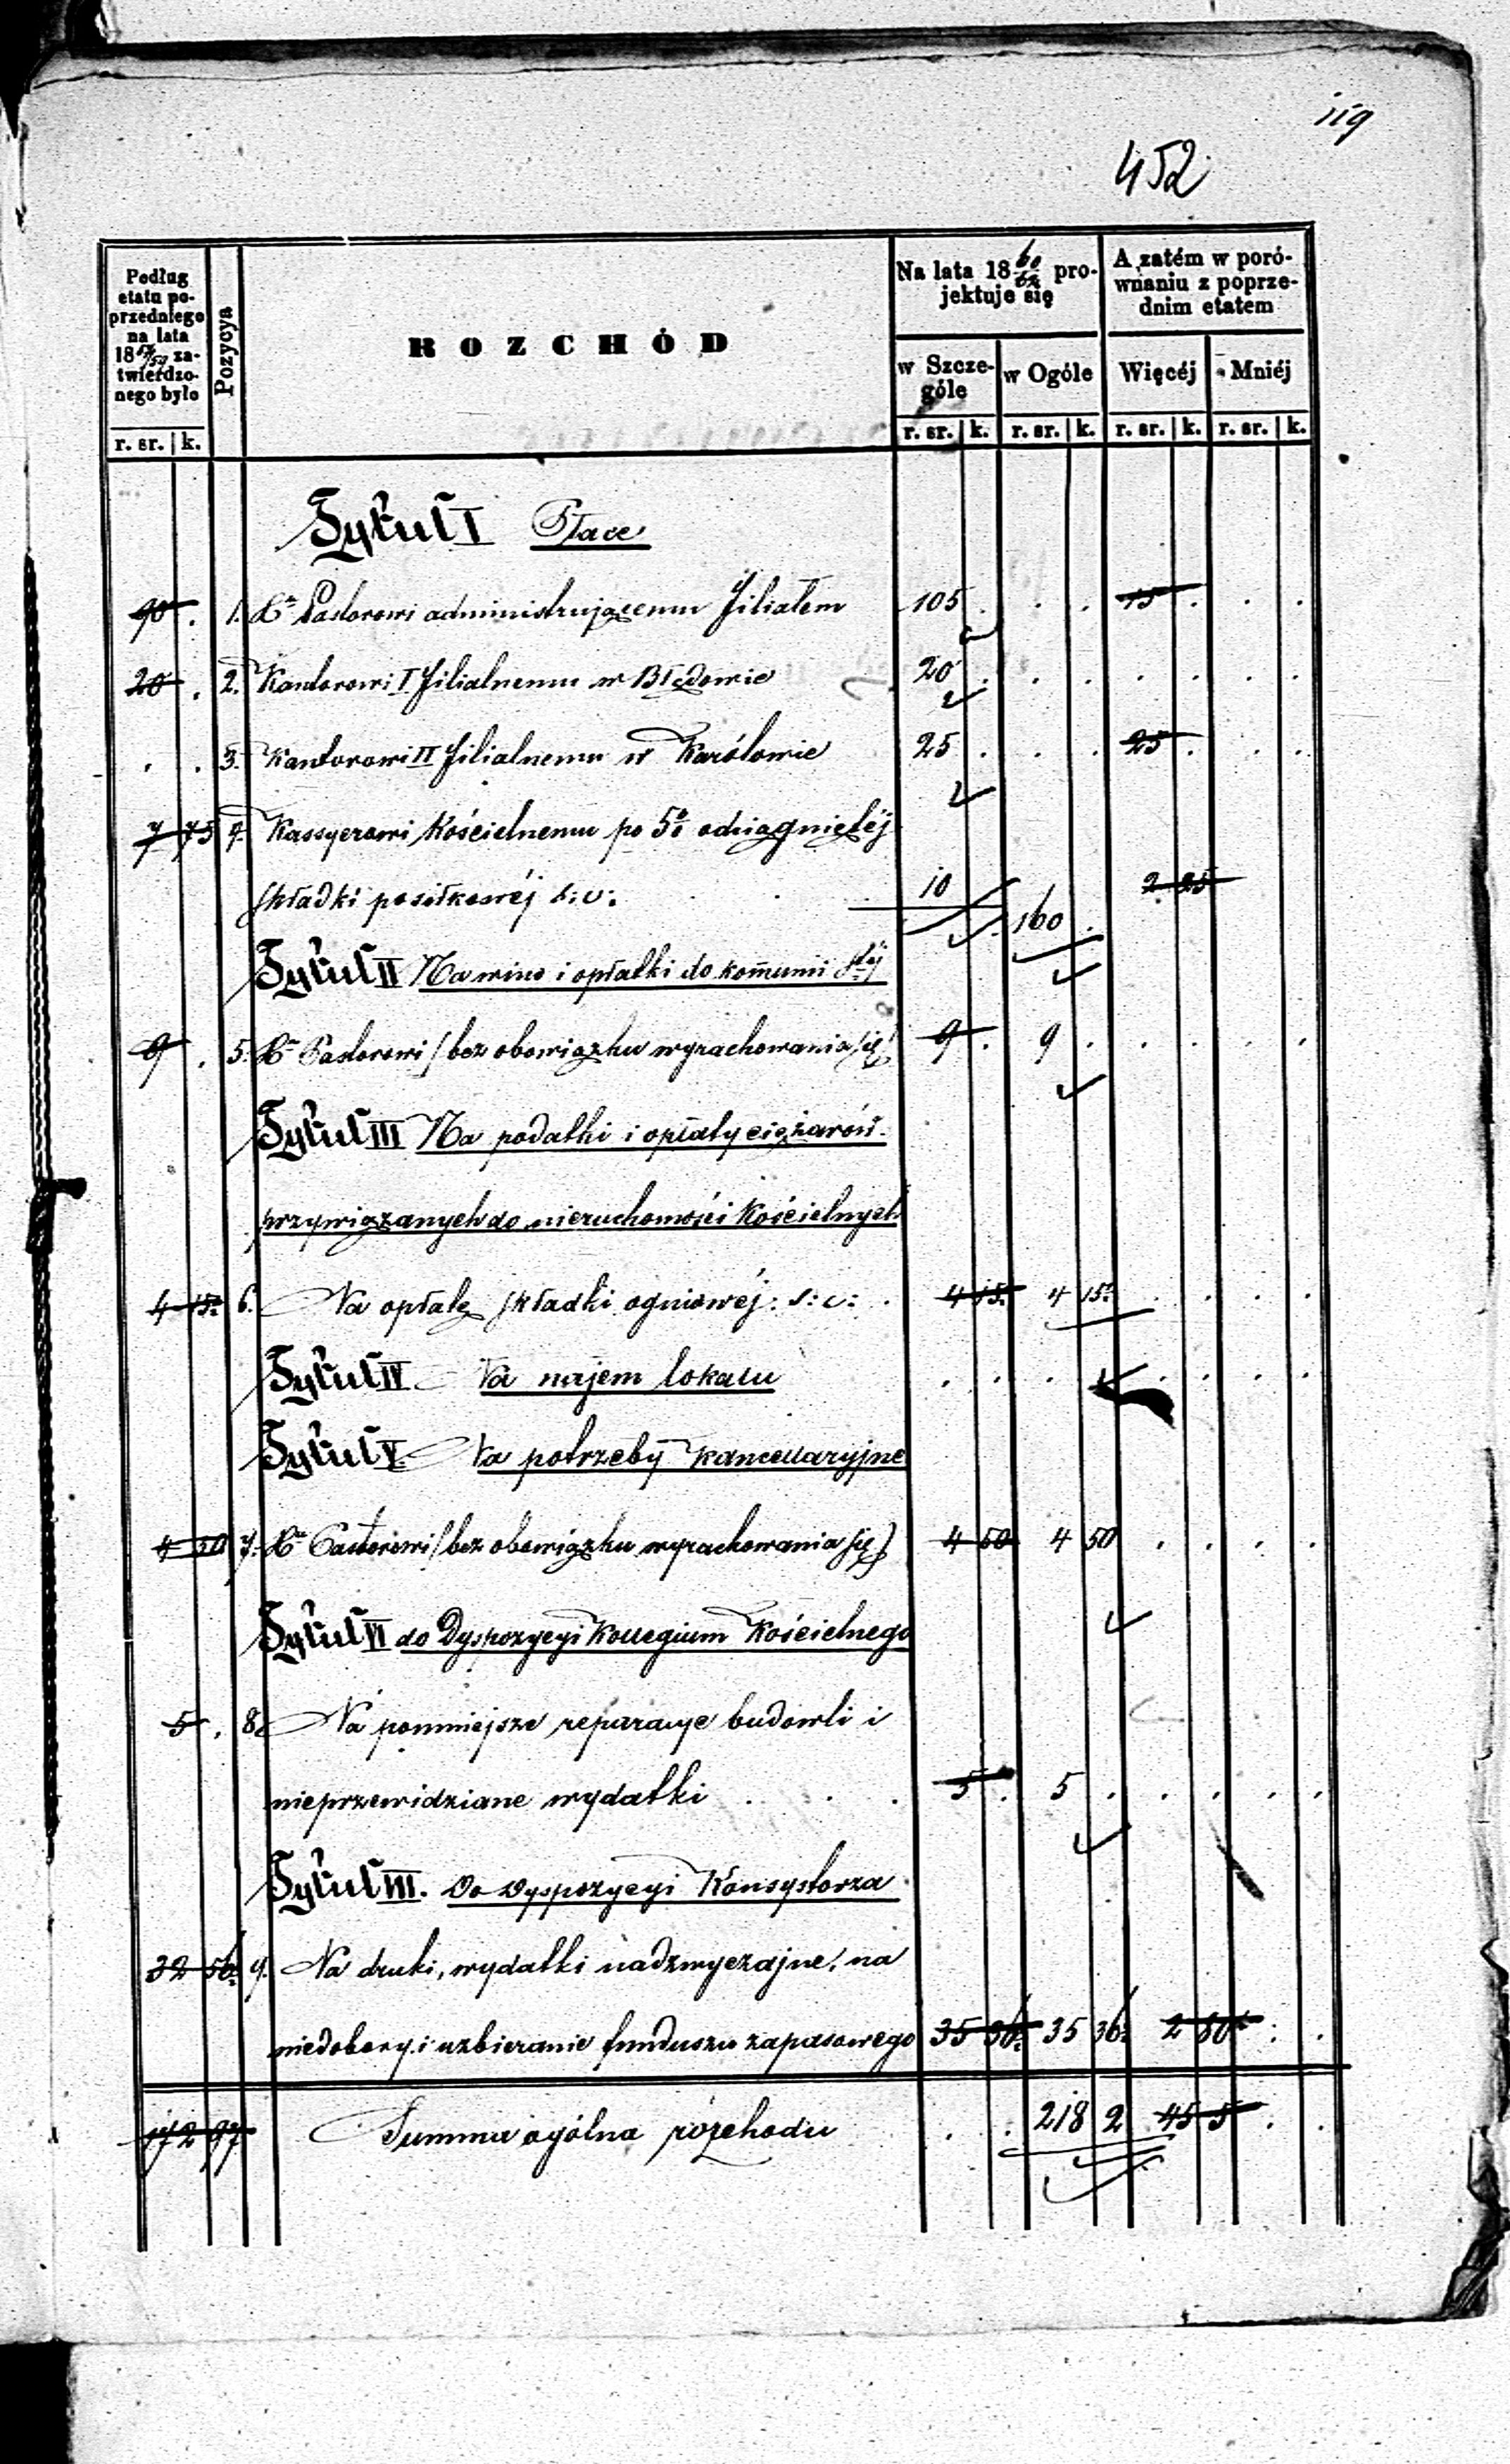 119
452
Podług etatu poprzedniego na lata 1857/59 zatwierdzonego było
Pozycya
ROZCHÓD
Na lata 1860/62 projektuje się
A zatém w porównaniu z poprzednim etatem
w Szczególe
w Ogóle
Więcéj
Mniéj
r. sr. | k. r. sr. | k. r. sr. | k. r. sr. | k. r. sr. | k.
Tytuł I Płace
90 . 1. Xu Pastorowi administrującemu filiałem 105 . . . 15 . . .
20 . 2. Kantorowi I filialnemu w Błędowie 20 . . . . . . .
. . 3. Kantorowi II filialnemu w Karólowie 25 . . . 25 . . .
7 75 4. Kassyerowi Kościelnemu po 5% odciągniętéj
składki posiłkowéj s: v: 10 160 . 2 25
Tytuł II Na wino i opłatki do kommunii Stéj
9 . 5. Xu Pastorowi (bez obowiązku wyrachowania się) 9 . 9 . . . . .
Tytuł III Na podatki i opłaty ciężarów
przywiązanych do nieruchomości Kościelnych
4 15 6. Na opłatę składki ogniowéj: s: v: 4 15 4 15 . . . .
Tytuł IV Na najem lokalu . . . . . . .
Tytuł V Na potrzeby kancellaryjne
4 50 7. Xu Pastorowi (bez obowiązku wyrachowania się) 4 50 4 50 . . . .
Tytuł VI do Dyspozycyi Kollegium Kościelnego
5 . 8. Na pomniejsze reparacye budowli i
nieprzewidziane wydatki . . . 5 . 5 . . . . .
Tytuł VII. Do Dyspozycyi Konsystorza
32 56 9. Na druki, wydatki nadzwyczajne, na
niedobory i uzbieranie funduszu zapasowego 35 36 35 36 2 80 . .
172 97 Summa ogólna rozchodu . . 218 2 45 5 . .